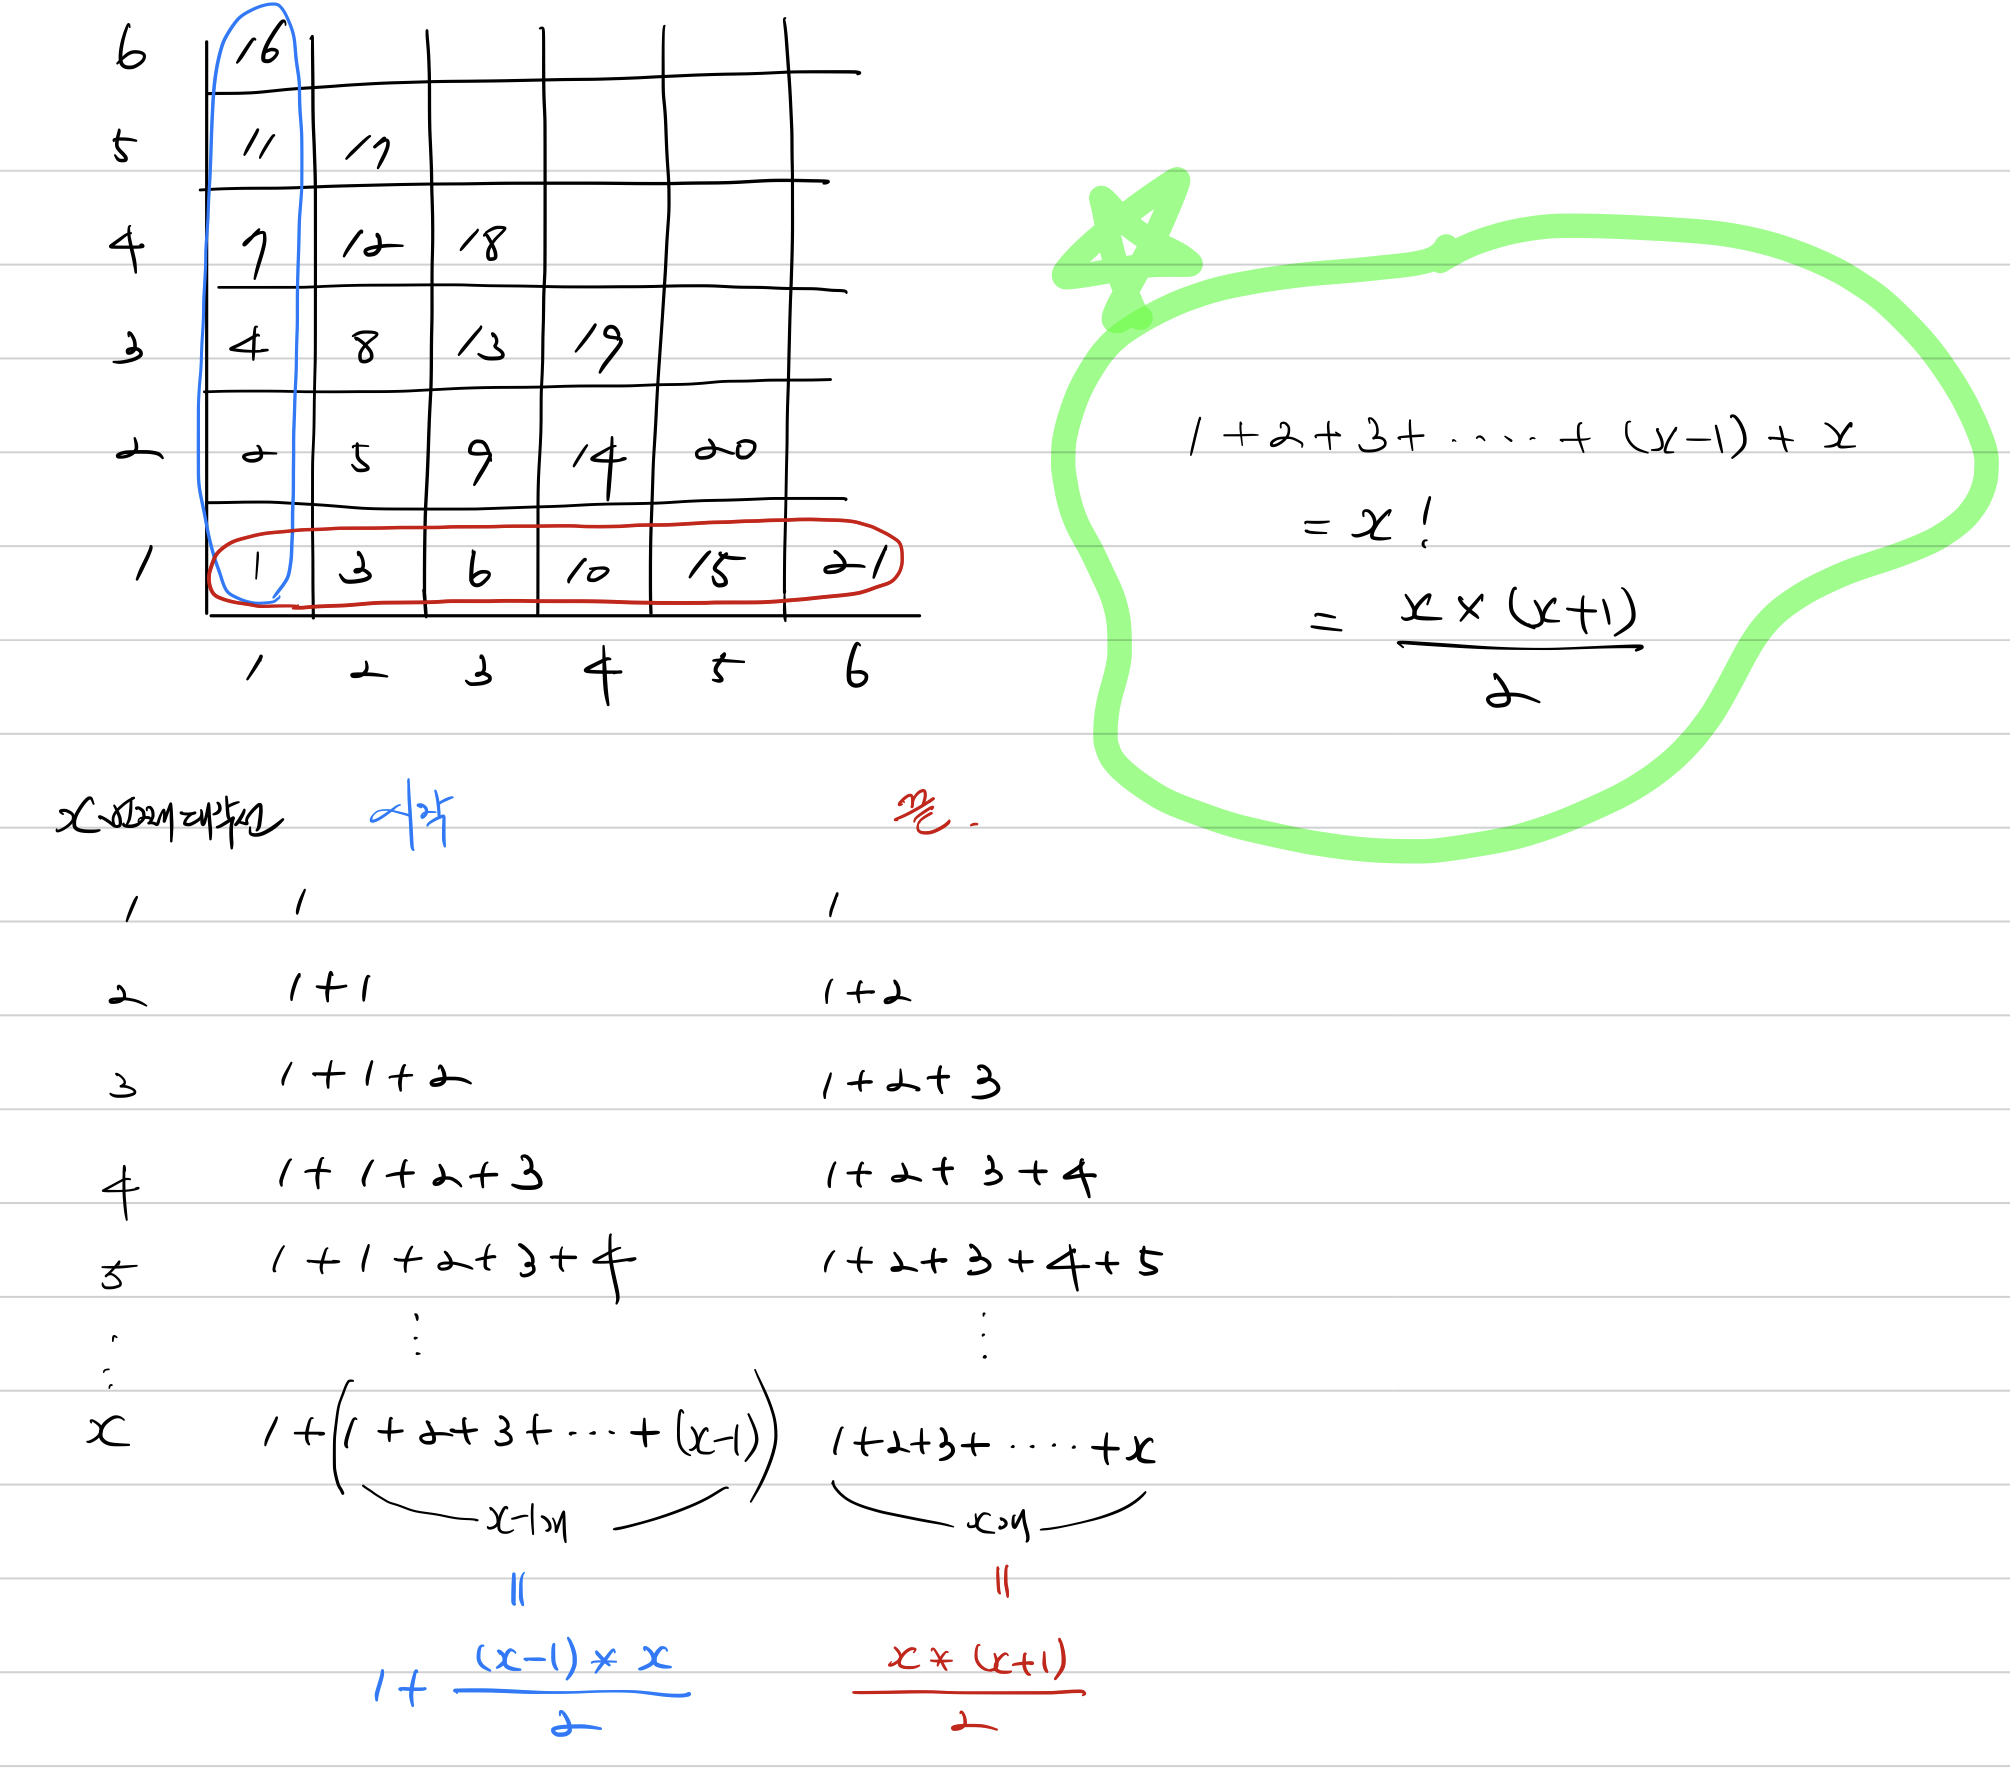 6 16
5 11 17
4 7 12 18
3 4 8 13 19
2 2 5 9 14 20
1 1 3 6 10 15 21
1 2 3 4 5 6
1+2+3+.....+(x-1)+x
= x!
= x×(x+1)
2
시작 끝.
1 1 1
2 1+1 1+2
3 1+1+2 1+2+3
4 1+1+2+3 1+2+3+4
5 1+1+2+3+4 1+2+3+4+5
⋮ ⋮ ⋮
x 1+(1+2+3+...+(x-1)) 1+2+3+....+x
= =
1+ (x-1)*x x*(x+1)
2 2